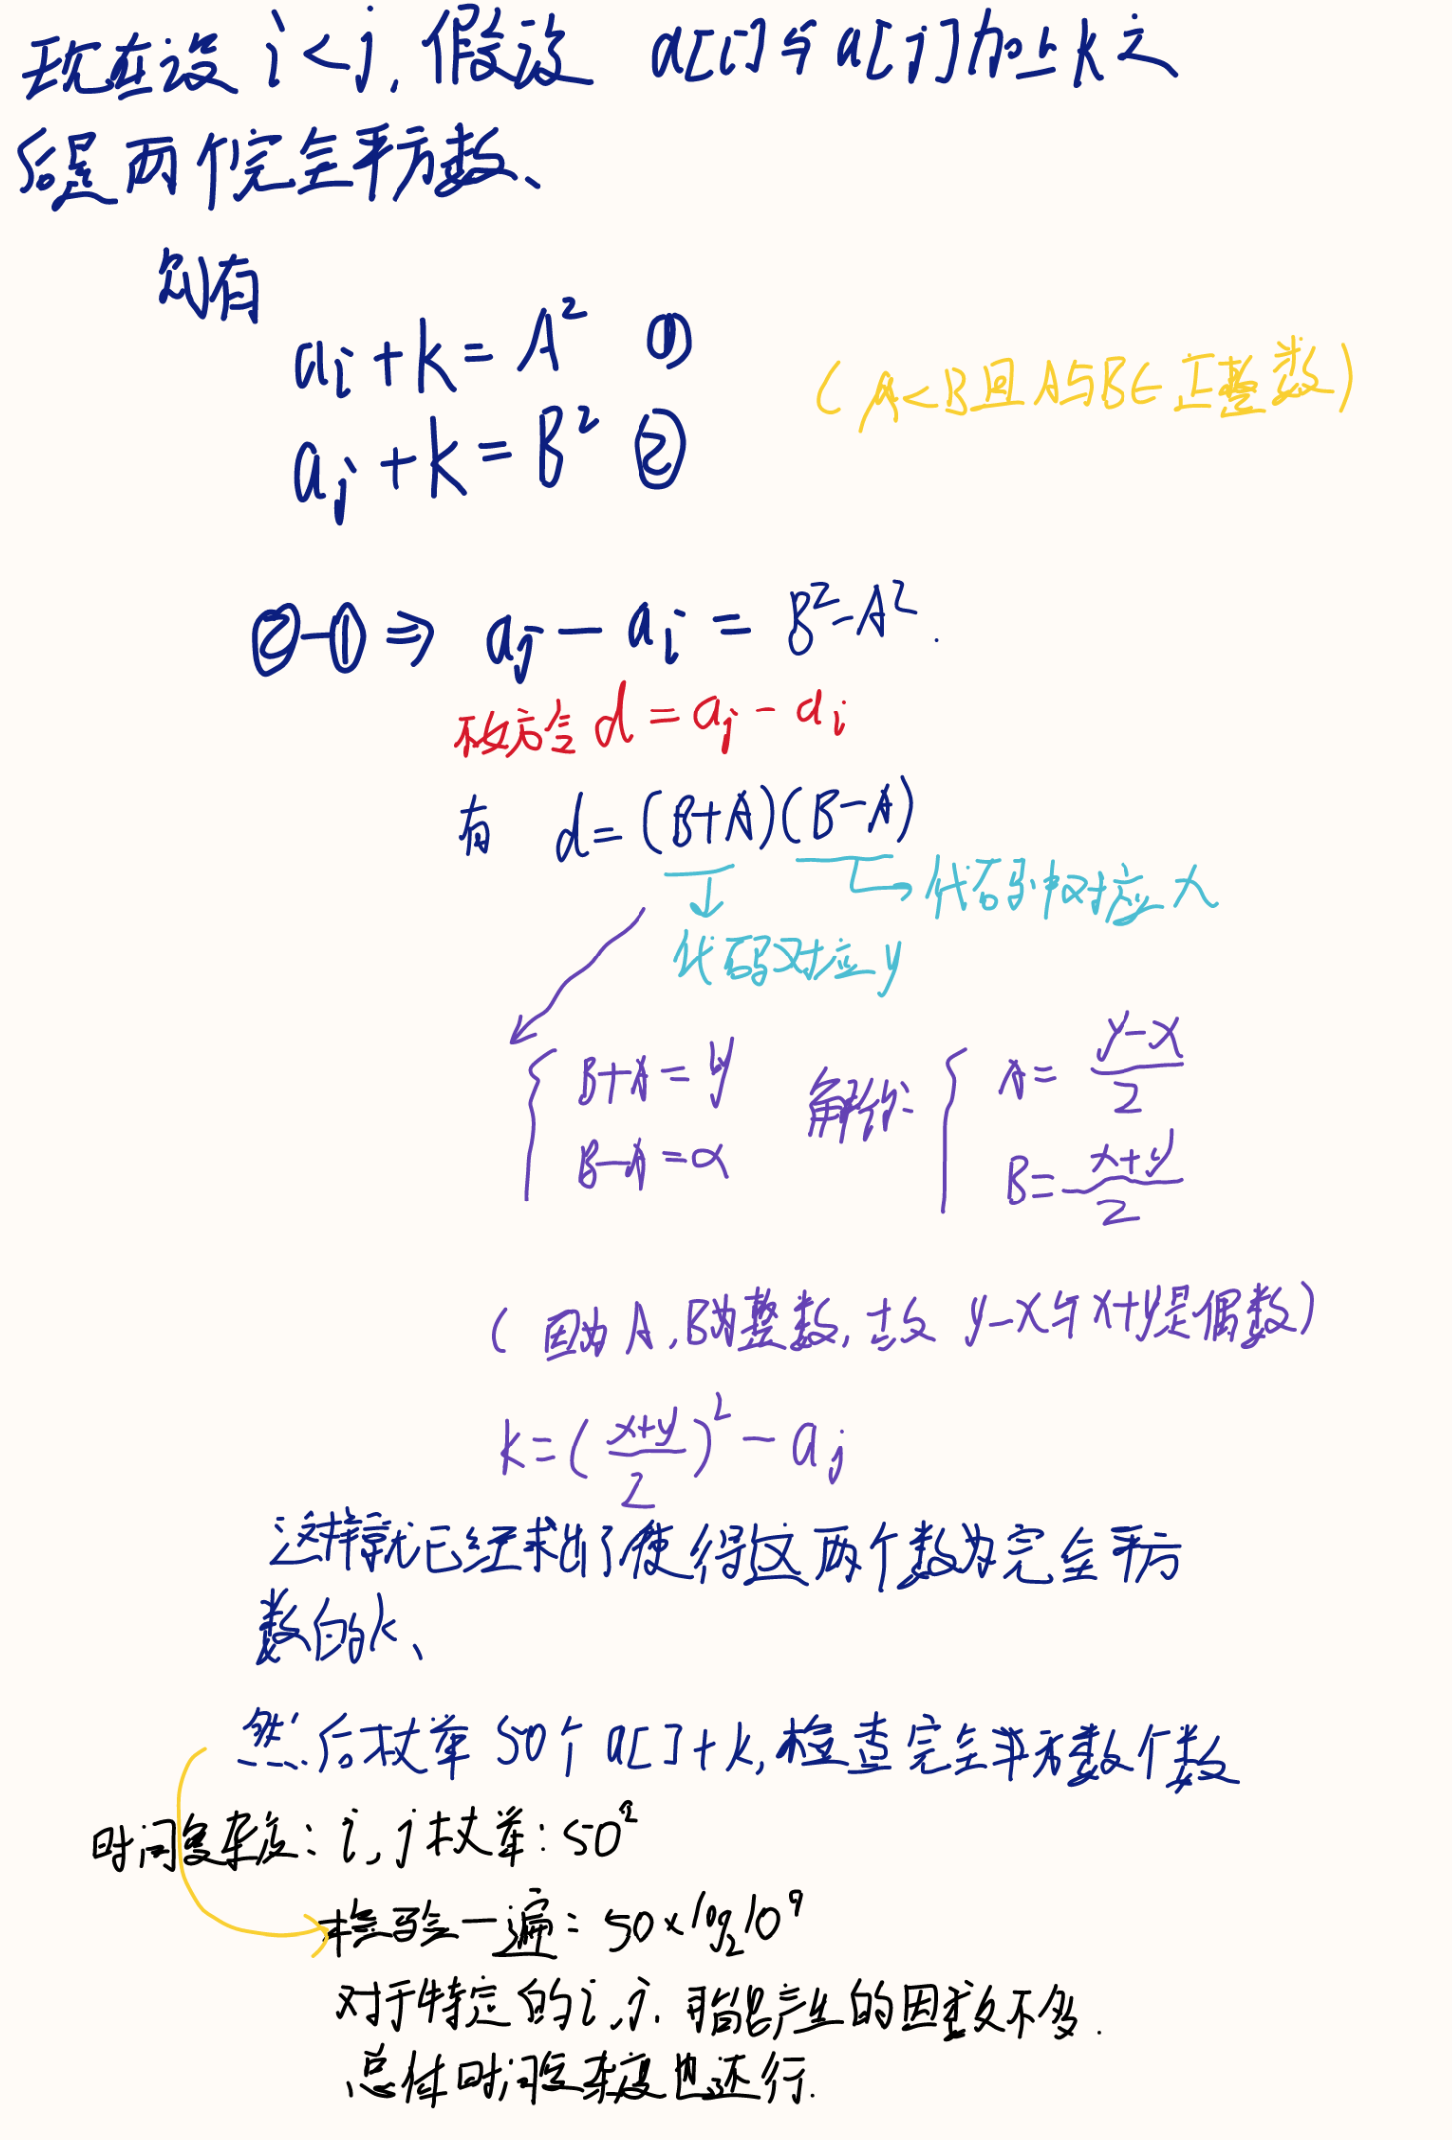 现在设 i<j, 假设 a[i]与a[j]加上k之
后是两个完全平方数、
则有
ai+k=A² ①
(A<B且A与B∈正整数)
aj+k=B² ②
②-① ⇒ aj-ai=B²-A².
故后令 d=aj-ai
有 d=(B+A)(B-A)
代码中对应x
代码对应y
B+A=y
B-A=x
解得:
A=(y-x)/2
B=(x+y)/2
(因为A,B为整数,故y-x与x+y是偶数)
k=((x+y)/2)²-aj
这样就已经求出了使得这两个数为完全平方
数的k、
然后枚举50个a[]+k,检查完全平方数个数
时间复杂度: i,j枚举: 50²
检验一遍: 50×log₂10⁹
对于特定的i,j,可能产生的因数不多.
总体时间复杂度也还行.